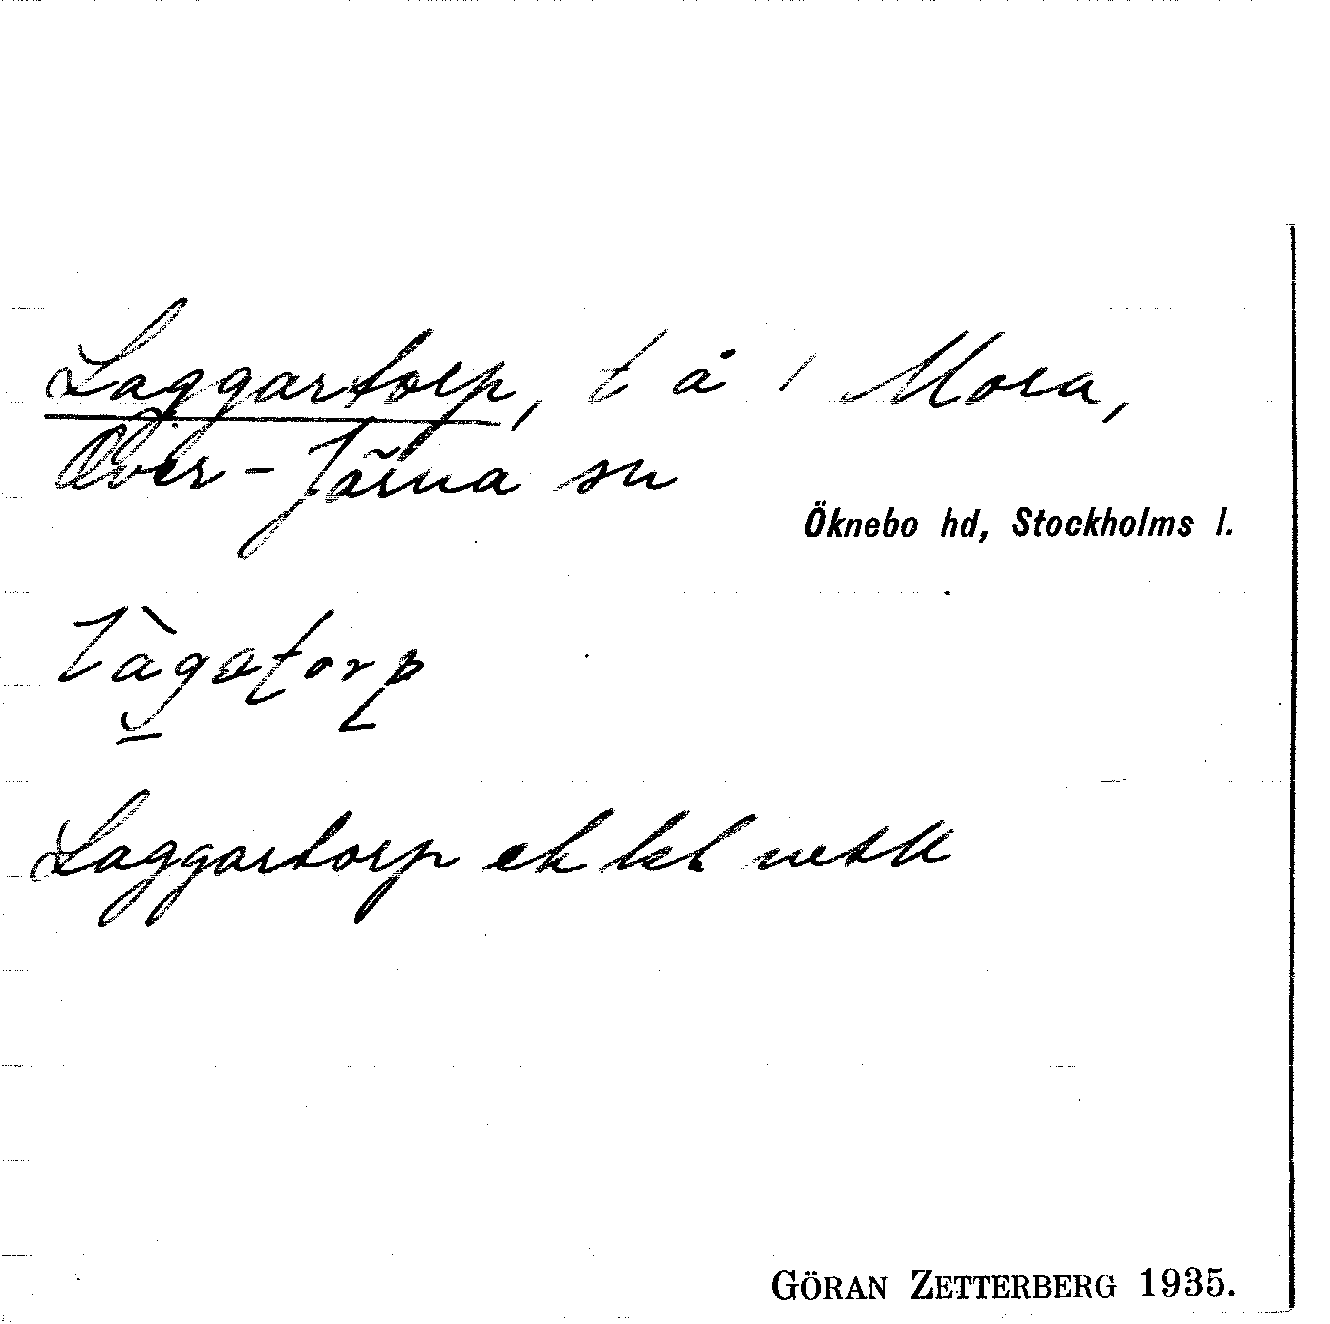 Laggartorp, t å 1 Mora,
Över-Järna sn
Öknebo hd, Stockholms l.
làgatorp
Laggartorp ek bl
GÖRAN ZETTERBERG 1935.